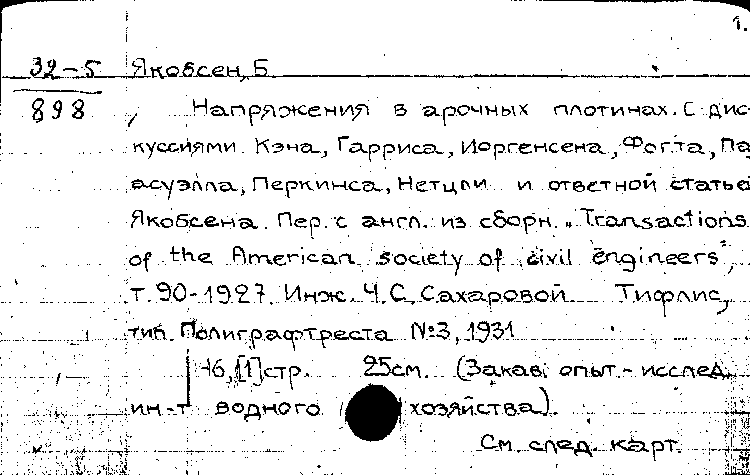 1.
32-5 Якобсен, Б.
898 Напряжения в арочных плотинах. С дис
куссиями Кэна, Гарриса, Иоргенсена, Фогта, Па
асуэлла, Перкинса, Нетцли и ответной статье
Якобсена. Пер. с англ. из сборн. „Transactions
of the American society of civil engineers",
т. 90-1927. Инж. Ч. С. Сахаровой Тифлис,
тип. Полиграфтреста №3, 1931
[1] стр. 25см. (Закав. опыт.-исслед.
ин-т водного хозяйства).
См. след. карт.